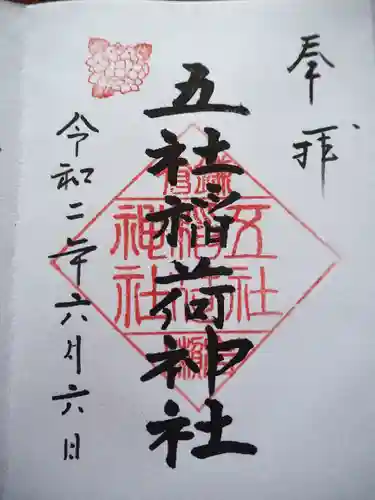 奉拝
五社稲荷神社
令和二年六月六日
五社
稲荷
神社